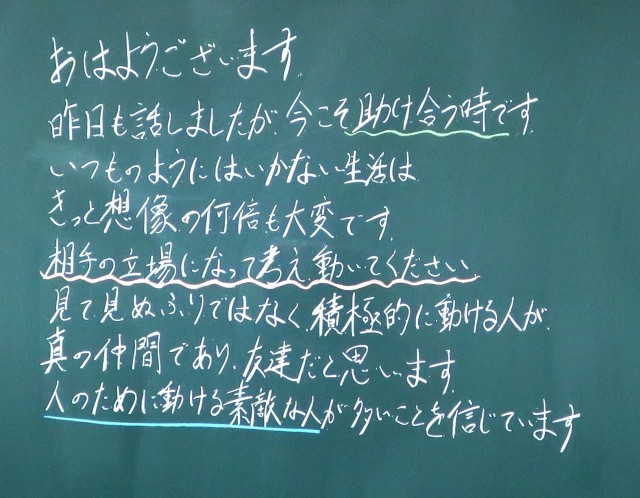 おはようございます.
昨日も話しましたが、今こそ助け合う時です.
いつものようにはいかない生活は
きっと想像の何倍も大変です.
相手の立場になって考え動いてください
見て見ぬふりではなく、積極的に動ける人が、
真の仲間であり、友達だと思います.
人のために動ける素敵な人が多いことを信じています